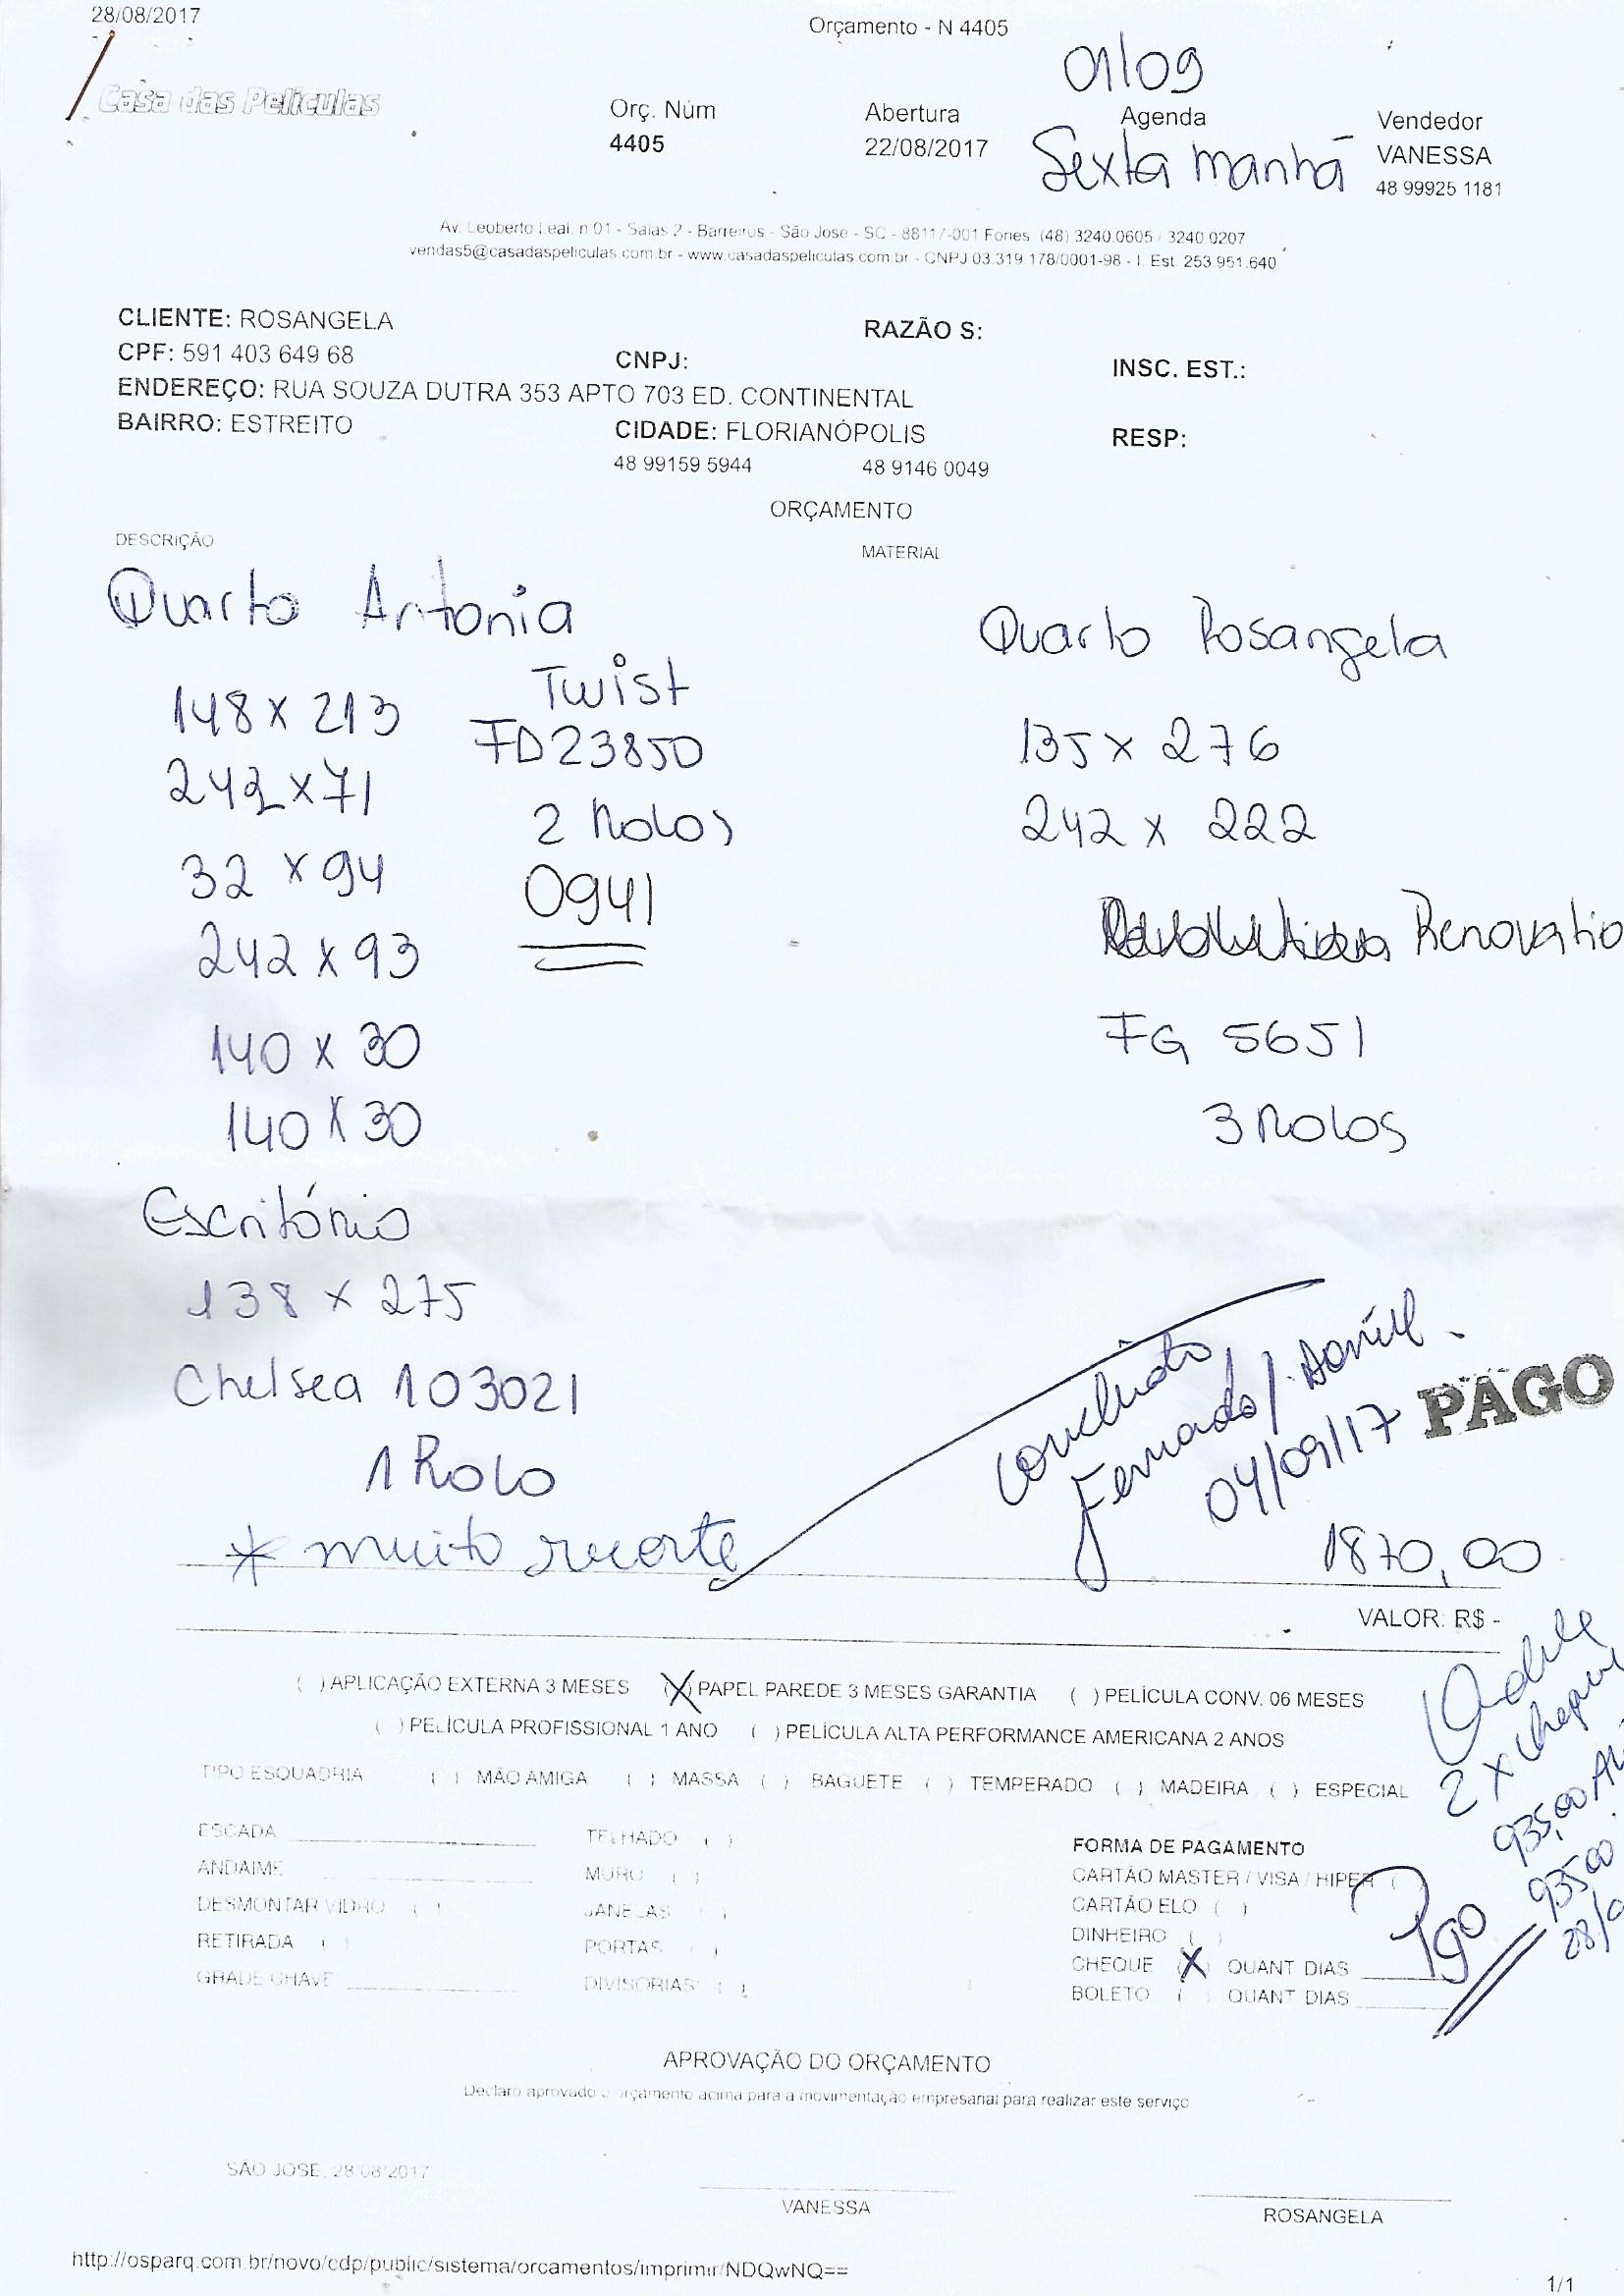 28/08/2017
Orçamento - N 4405
01/09
Casa das Películas
Orç. Núm
Abertura
Agenda
Vendedor
4405
22/08/2017
Sexta manhã
VANESSA
48 99925 1181
Av. Leoberto Leal, n 01 - Salas 2 - Barreiros - São José - SC - 88117-001 Fones (48) 3240.0605 / 3240 0207
vendas5@casadaspeliculas.com.br - www.casadaspeliculas.com.br - CNPJ 03.319 178/0001-98 - I. Est. 253.951.640
CLIENTE: ROSANGELA
RAZÃO S:
CPF: 591 403 649 68
CNPJ:
INSC. EST.:
ENDEREÇO: RUA SOUZA DUTRA 353 APTO 703 ED. CONTINENTAL
BAIRRO: ESTREITO
CIDADE: FLORIANÓPOLIS
RESP:
48 99159 5944
48 9146 0049
ORÇAMENTO
DESCRIÇÃO
MATERIAL
Quarto Antonia
148 x 213
242 x 71
32 x 94
242 x 93
140 x 30
140 x 30
Twist
FD23850
2 Rolos
0941
Quarto Rosangela
135 x 276
242 x 222
Renovatio
FG 5651
3 Rolos
Escritório
138 x 275
Chelsea 103021
1 Rolo
* muito recorte
concluído
Fernado / Daniel.
04/09/17
PAGO
1870,00
VALOR: R$ -
( ) APLICAÇÃO EXTERNA 3 MESES (X) PAPEL PAREDE 3 MESES GARANTIA ( ) PELÍCULA CONV. 06 MESES
( ) PELÍCULA PROFISSIONAL 1 ANO ( ) PELÍCULA ALTA PERFORMANCE AMERICANA 2 ANOS
TIPO ESQUADRIA ( ) MÃO AMIGA ( ) MASSA ( ) BAGUETE ( ) TEMPERADO ( ) MADEIRA ( ) ESPECIAL
2 x
935,00
935,00
28/
ESCADA
TELHADO ( )
FORMA DE PAGAMENTO
ANDAIME
MURO ( )
CARTÃO MASTER / VISA / HIPER ( )
DESMONTAR VIDRO ( )
JANELAS ( )
CARTÃO ELO ( )
RETIRADA ( )
PORTAS ( )
DINHEIRO ( )
GRADE CHAVE
DIVISORIAS ( )
CHEQUE (X) QUANT DIAS
BOLETO ( ) QUANT DIAS
Pgo
APROVAÇÃO DO ORÇAMENTO
Declaro aprovado o orçamento acima para a movimentação empresarial para realizar este serviço
SÃO JOSE, 28/08/2017
VANESSA
ROSANGELA
http://osparq.com.br/novo/cdp/public/sistema/orcamentos/imprimir/NDQwNQ==
1/1